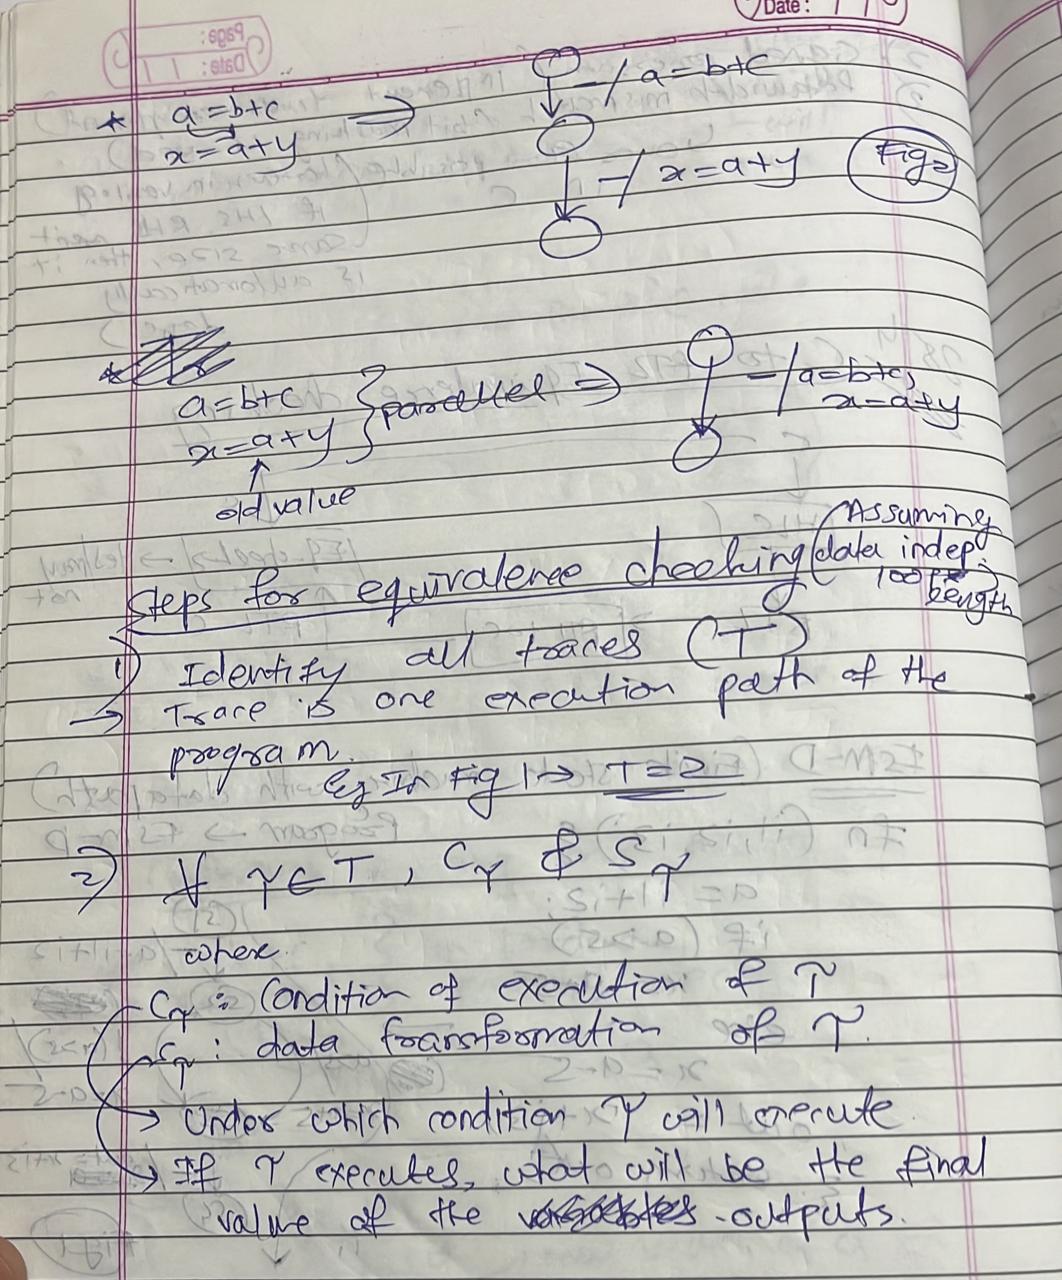 Date: / /
Page:
Date: / /
* a=b+c ⇒ -/ a=b+c
x=a+y -/ x=a+y Fig2
*
a=b+c
x=a+y } parallel ⇒ -/a=b+c,
x=a+y
↑
old value
Steps for equivalence checking (Assuming
data indep.
loop
length)
1) Identify all traces (T)
→ Trace is one execution path of the
program.
Eg In Fig 1 → T=2
2) ∀ τ∈T, Cτ & Sτ
where
Cτ : Condition of execution of τ
Sτ : data transformation of τ.
→ Under which condition τ will execute.
→ If τ executes, what will be the final
value of the outputs.